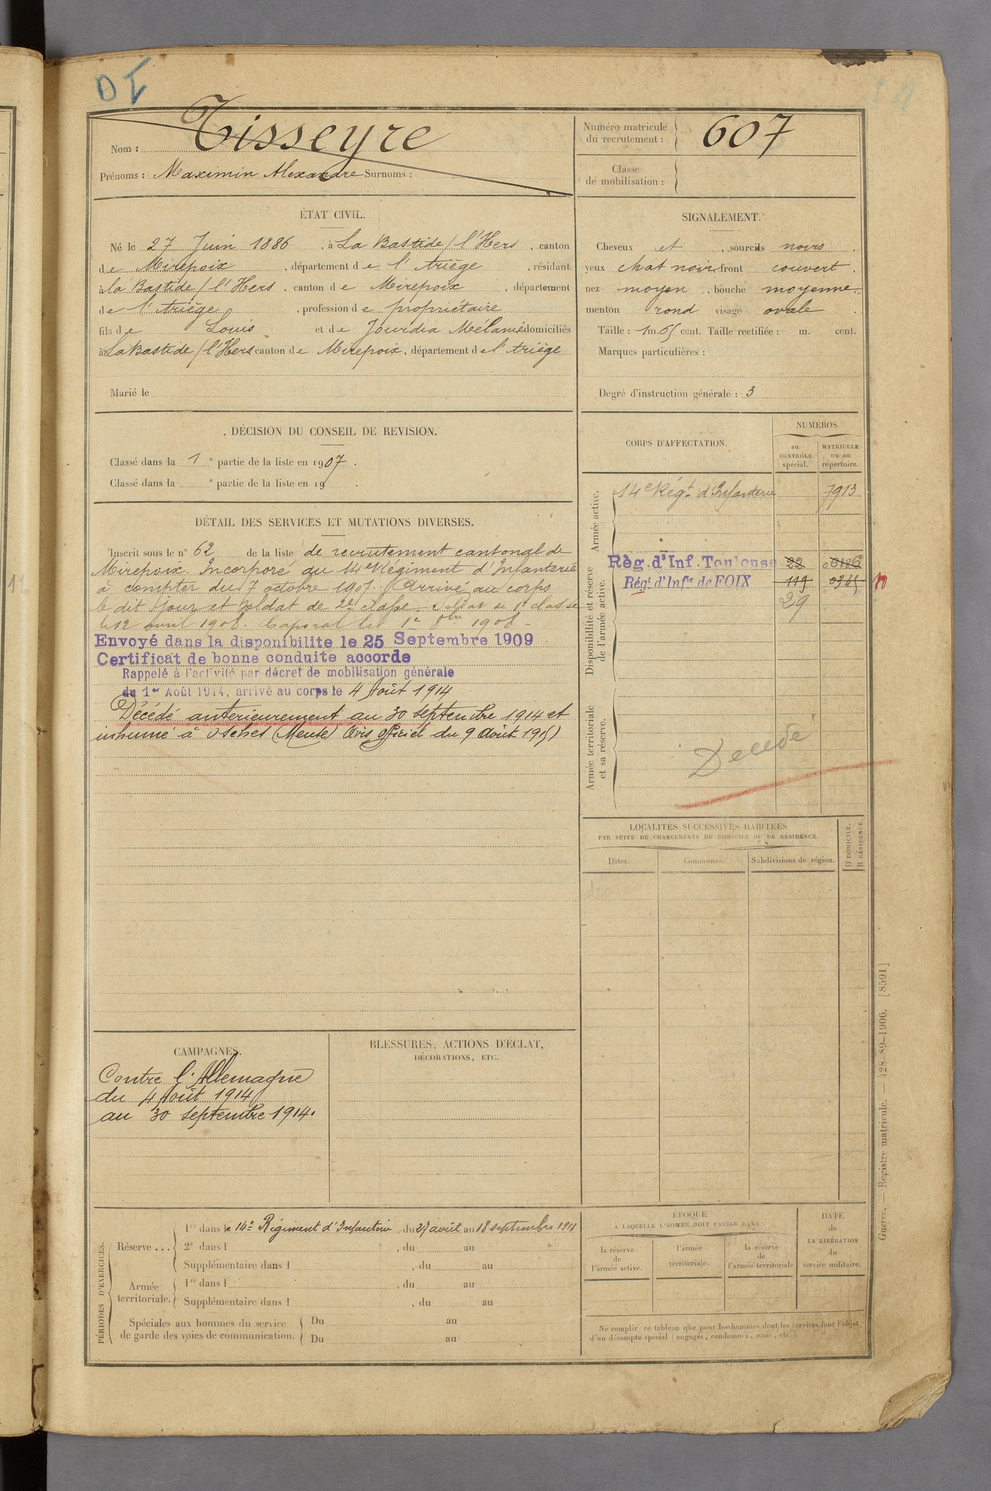 DI
Nom : Tisseyre
Prénoms : Maximin Alexandre Surnoms :
Numéro matricule du recrutement : 607
Classe de mobilisation :
ÉTAT CIVIL.
Né le 27 Juin 1886, à La Bastide s/ l'Hers, canton
de Mirepoix, département de l'Ariège, résidant
à La Bastide s/ l'Hers, canton de Mirepoix, département
de l'Ariège, profession de propriétaire
fils de Louis et de Mélanie domiciliés
à La Bastide s/ l'Hers canton de Mirepoix, département de l'Ariège
Marié le
SIGNALEMENT.
Cheveux et, sourcils noirs
yeux chat noir, front couvert
nez moyen, bouche moyenne
menton rond visage ovale
Taille : 1m. 65 cent. Taille rectifiée : m. cent.
Marques particulières :
Degré d'instruction générale : 3
DÉCISION DU CONSEIL DE REVISION.
Classé dans la 1e partie de la liste en 1907.
Classé dans la e partie de la liste en 19 .
DÉTAIL DES SERVICES ET MUTATIONS DIVERSES.
Inscrit sous le n° 62 de la liste de recrutement cantonal de
Mirepoix. Incorporé au 14e Régiment d'Infanterie
à compter du 7 octobre 1907. Arrivé au corps
le dit jour et soldat de 2e classe. Soldat de 1e classe
le 12 avril 1908. Caporal le 1er 8bre 1908
Envoyé dans la disponibilite le 25 Septembre 1909
Certificat de bonne conduite accorde
Rappelé à l'activité par décret de mobilisation générale
du 1er Août 1914, arrivé au corps le 4 Août 1914
Décédé antérieurement au 30 septembre 1914 et
inhumé à Osches (Meuse) (Avis officiel du 9 Août 1915)
CORPS D'AFFECTATION.
NUMÉROS
au CONTRÔLE spécial.
MATRICULE ou au répertoire.
Armée active.
14e Régt d'Infanterie 7913
Disponibilité et réserve de l'armée active.
Règ. d'Inf. Toulouse 22 0
Régt d'Infie de FOIX 119
29
Armée territoriale et sa réserve.
Décédé
LOCALITÉS SUCCESSIVES HABITÉES
PAR SUITE DE CHANGEMENTS DE DOMICILE OU DE RÉSIDENCE.
Dates.
Communes.
Subdivisions de région.
D DOMICILE.
R RÉSIDENCE.
CAMPAGNES.
Contre l'Allemagne
du 4 Août 1914
au 30 septembre 1914.
BLESSURES, ACTIONS D'ÉCLAT,
DÉCORATIONS, ETC.
PÉRIODES D'EXERCICES.
Réserve...
1re dans le 14e Régiment d'Infanterie, du 27 avril au 18 septembre 1911
2e dans l , du au
Supplémentaire dans l , du au
Armée territoriale.
1re dans l , du au
Supplémentaire dans l , du au
Spéciales aux hommes du service
de garde des voies de communication.
Du au
Du au
ÉPOQUE
À LAQUELLE L'HOMME DOIT PASSER DANS
la réserve de l'armée active.
l'armée territoriale.
la réserve de l'armée territoriale
DATE de LA LIBÉRATION du service militaire.
Ne remplir ce tableau que pour les hommes dont les services font l'objet
d'un décompte spécial (engagés, condamnés, omis, etc.)
Guerre. — Registre matricule. — 128-89-1906. [8591]